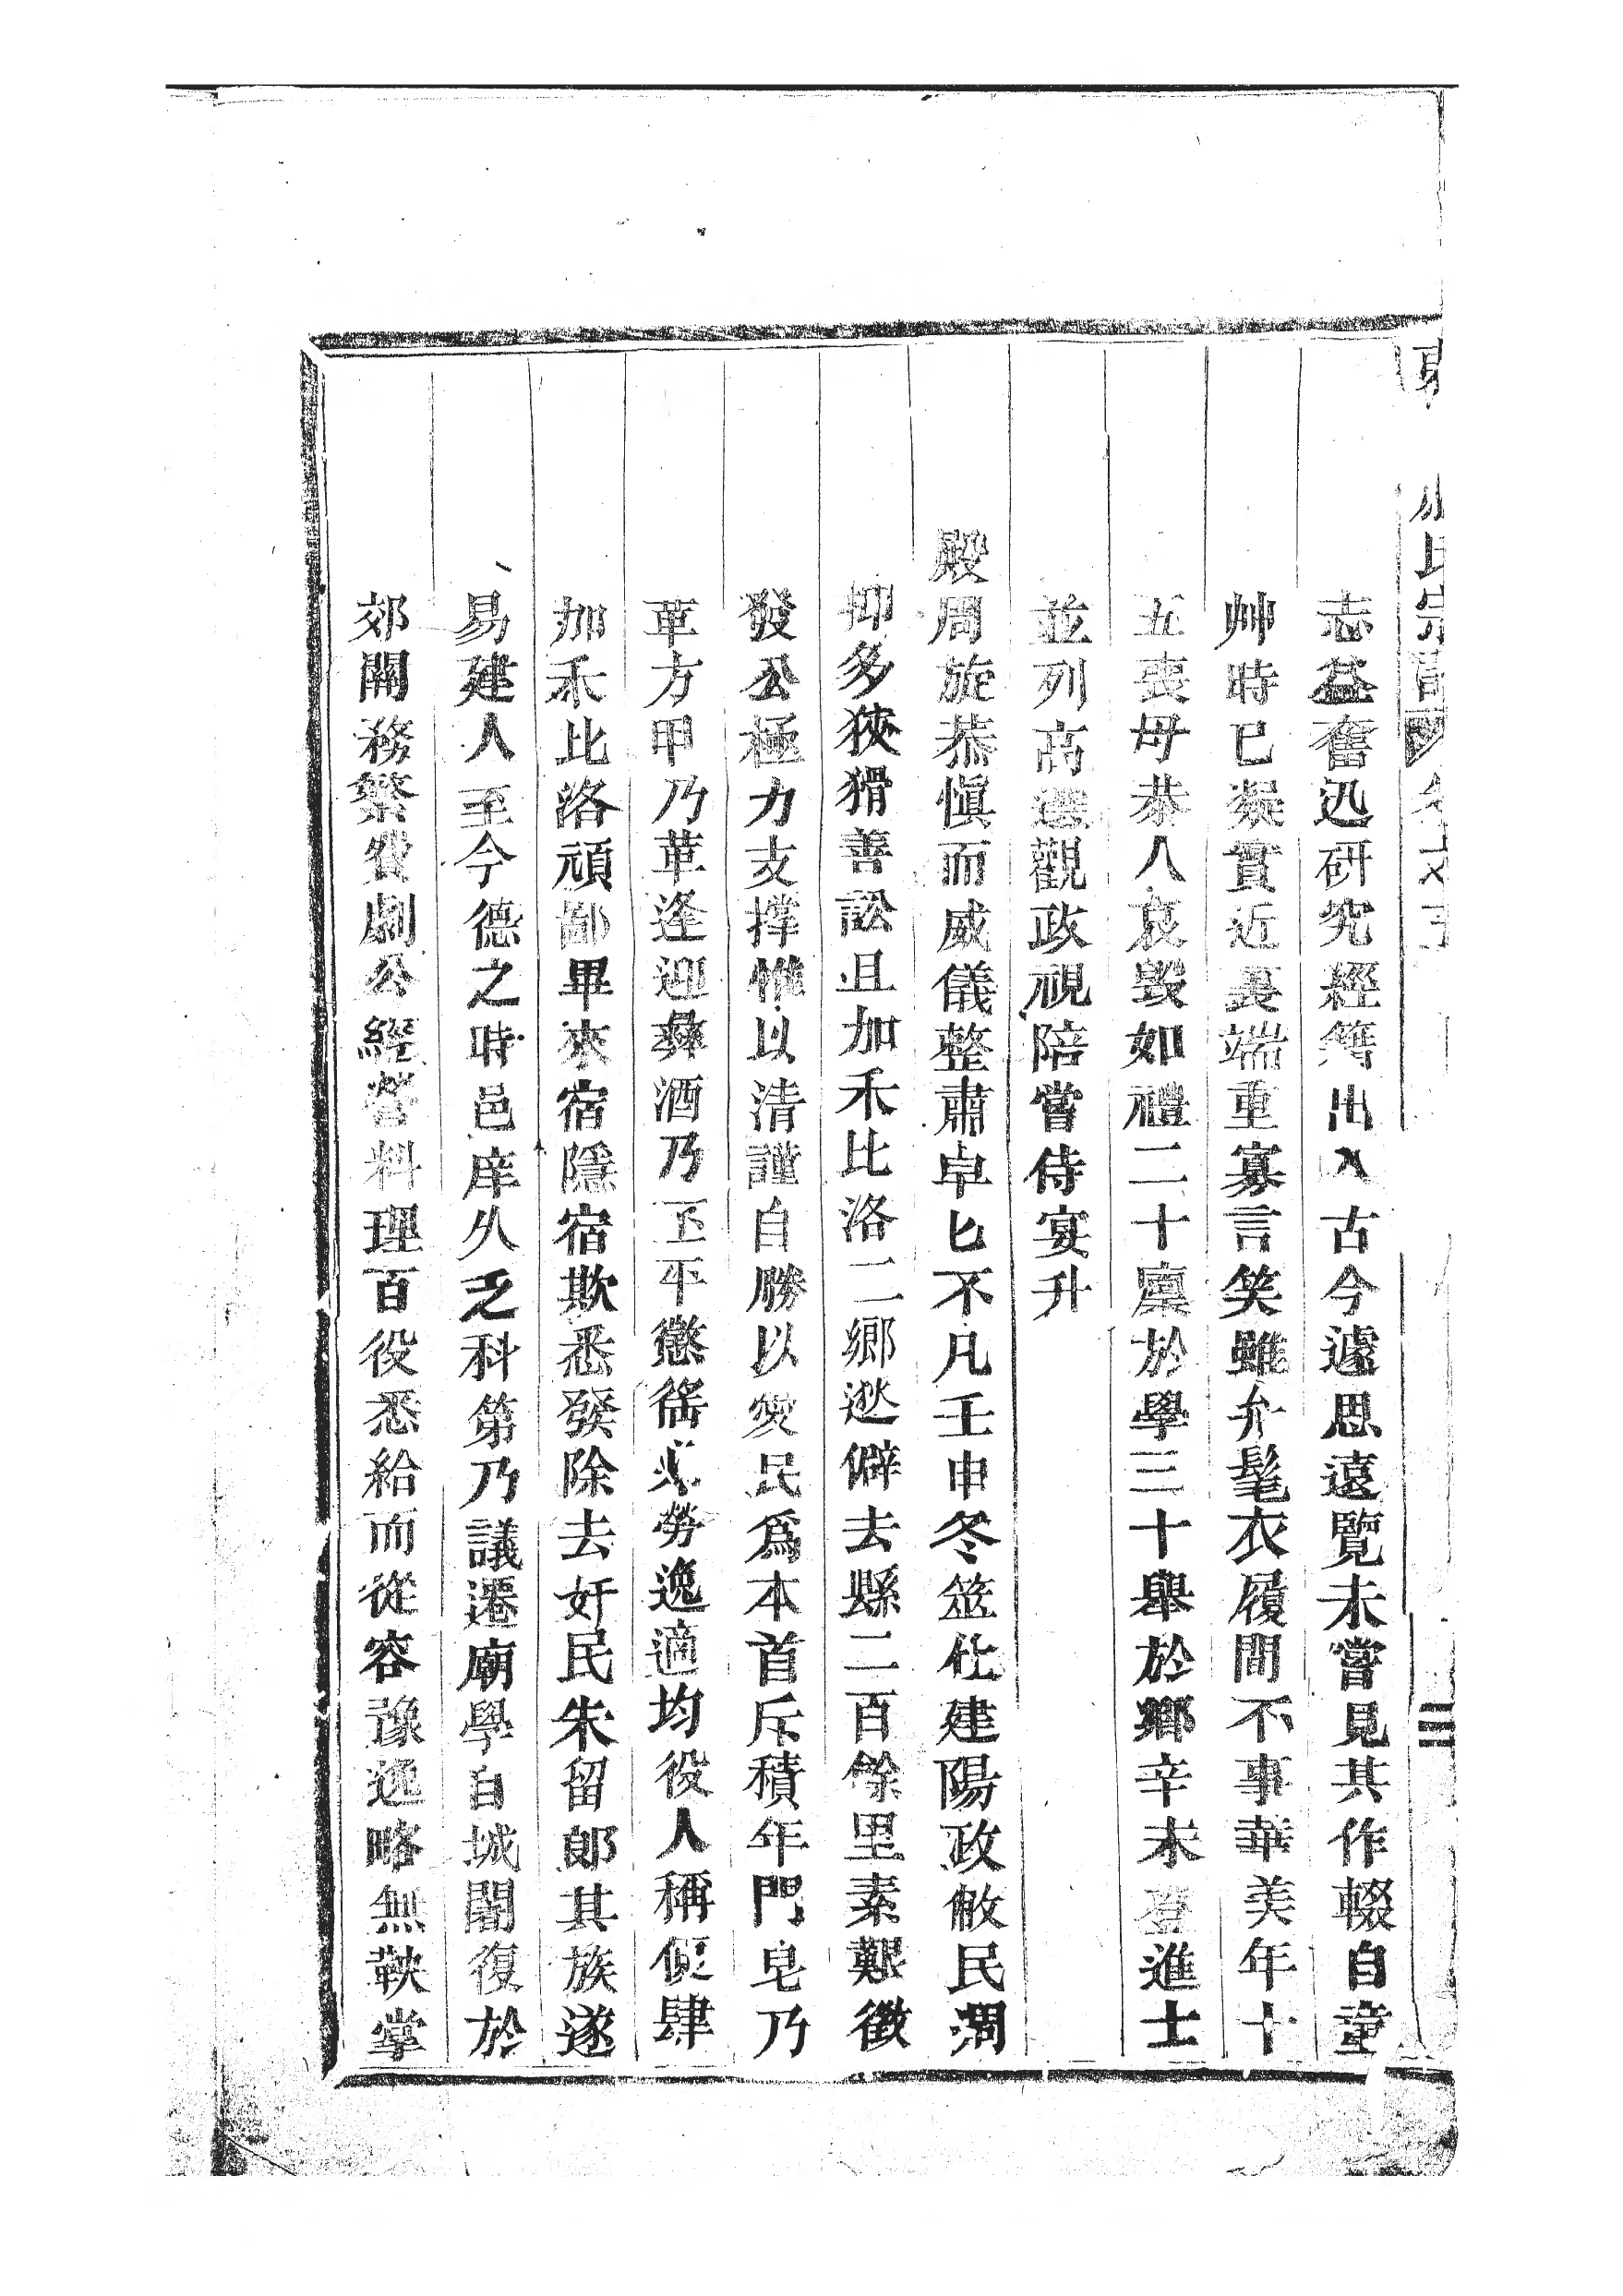 氏宗譜 卷 三
志益奮迅研究經籍出入古今遽思遠覽未嘗見其作輟自童
丱時已凝實近裏端重寡言笑雖弁髦衣履間不事華美年十
五喪母恭人哀毀如禮二十廩於學三十舉於鄉辛未登進士
並列高選觀政視陪嘗侍宴升
殿周旋恭慎而威儀整肅卓匕不凡壬申冬筮仕建陽政敝民凋
抑多狹猾善訟且加禾比洛二鄉逖僻去縣二百餘里素艱徵
發公極力支撐惟以清謹自勝以愛民爲本首斥積年門皂乃
革方甲乃革逢迎彝酒乃 平懲徭 勞逸適均役人稱便肆
加禾比洛頑鄙畢來宿隱宿欺悉發除去奸民朱留郎其族遂
易建人至今德之時邑庠久乏科第乃議遷廟學自城闉復於
郊關務繁費劇公經營料理百役悉給而從容豫逸略無鞅掌